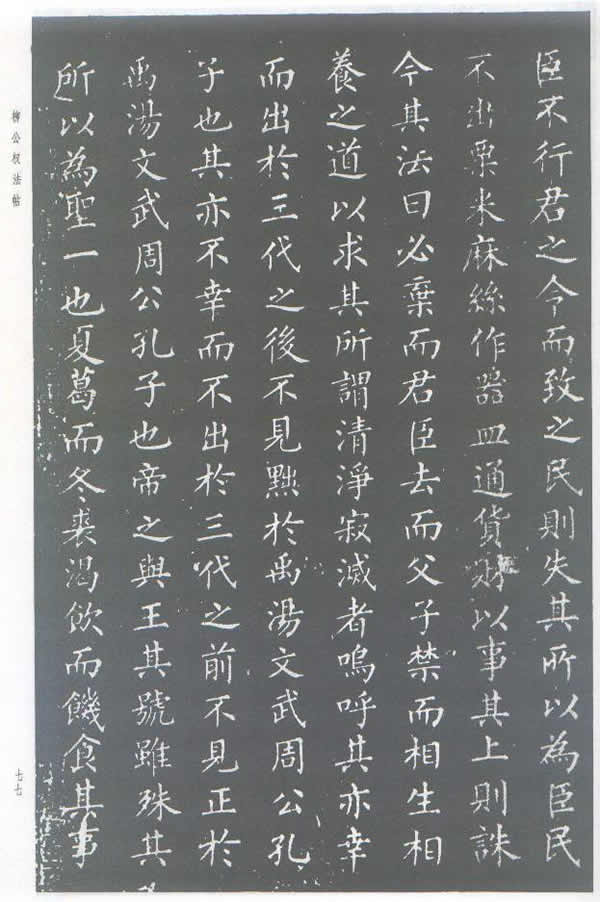 臣不行君之令而致之民則失其所以為臣民
不出粟米麻絲作器皿通貨財以事其上則誅
今其法曰必棄而君臣去而父子禁而相生相
養之道以求其所謂清淨寂滅者嗚呼其亦幸
而出於三代之後不見黜於禹湯文武周公孔
子也其亦不幸而不出於三代之前不見正於
禹湯文武周公孔子也帝之與王其號雖殊其
所以為聖一也夏葛而冬裘渴飲而饑食其事
柳公权法帖
七七